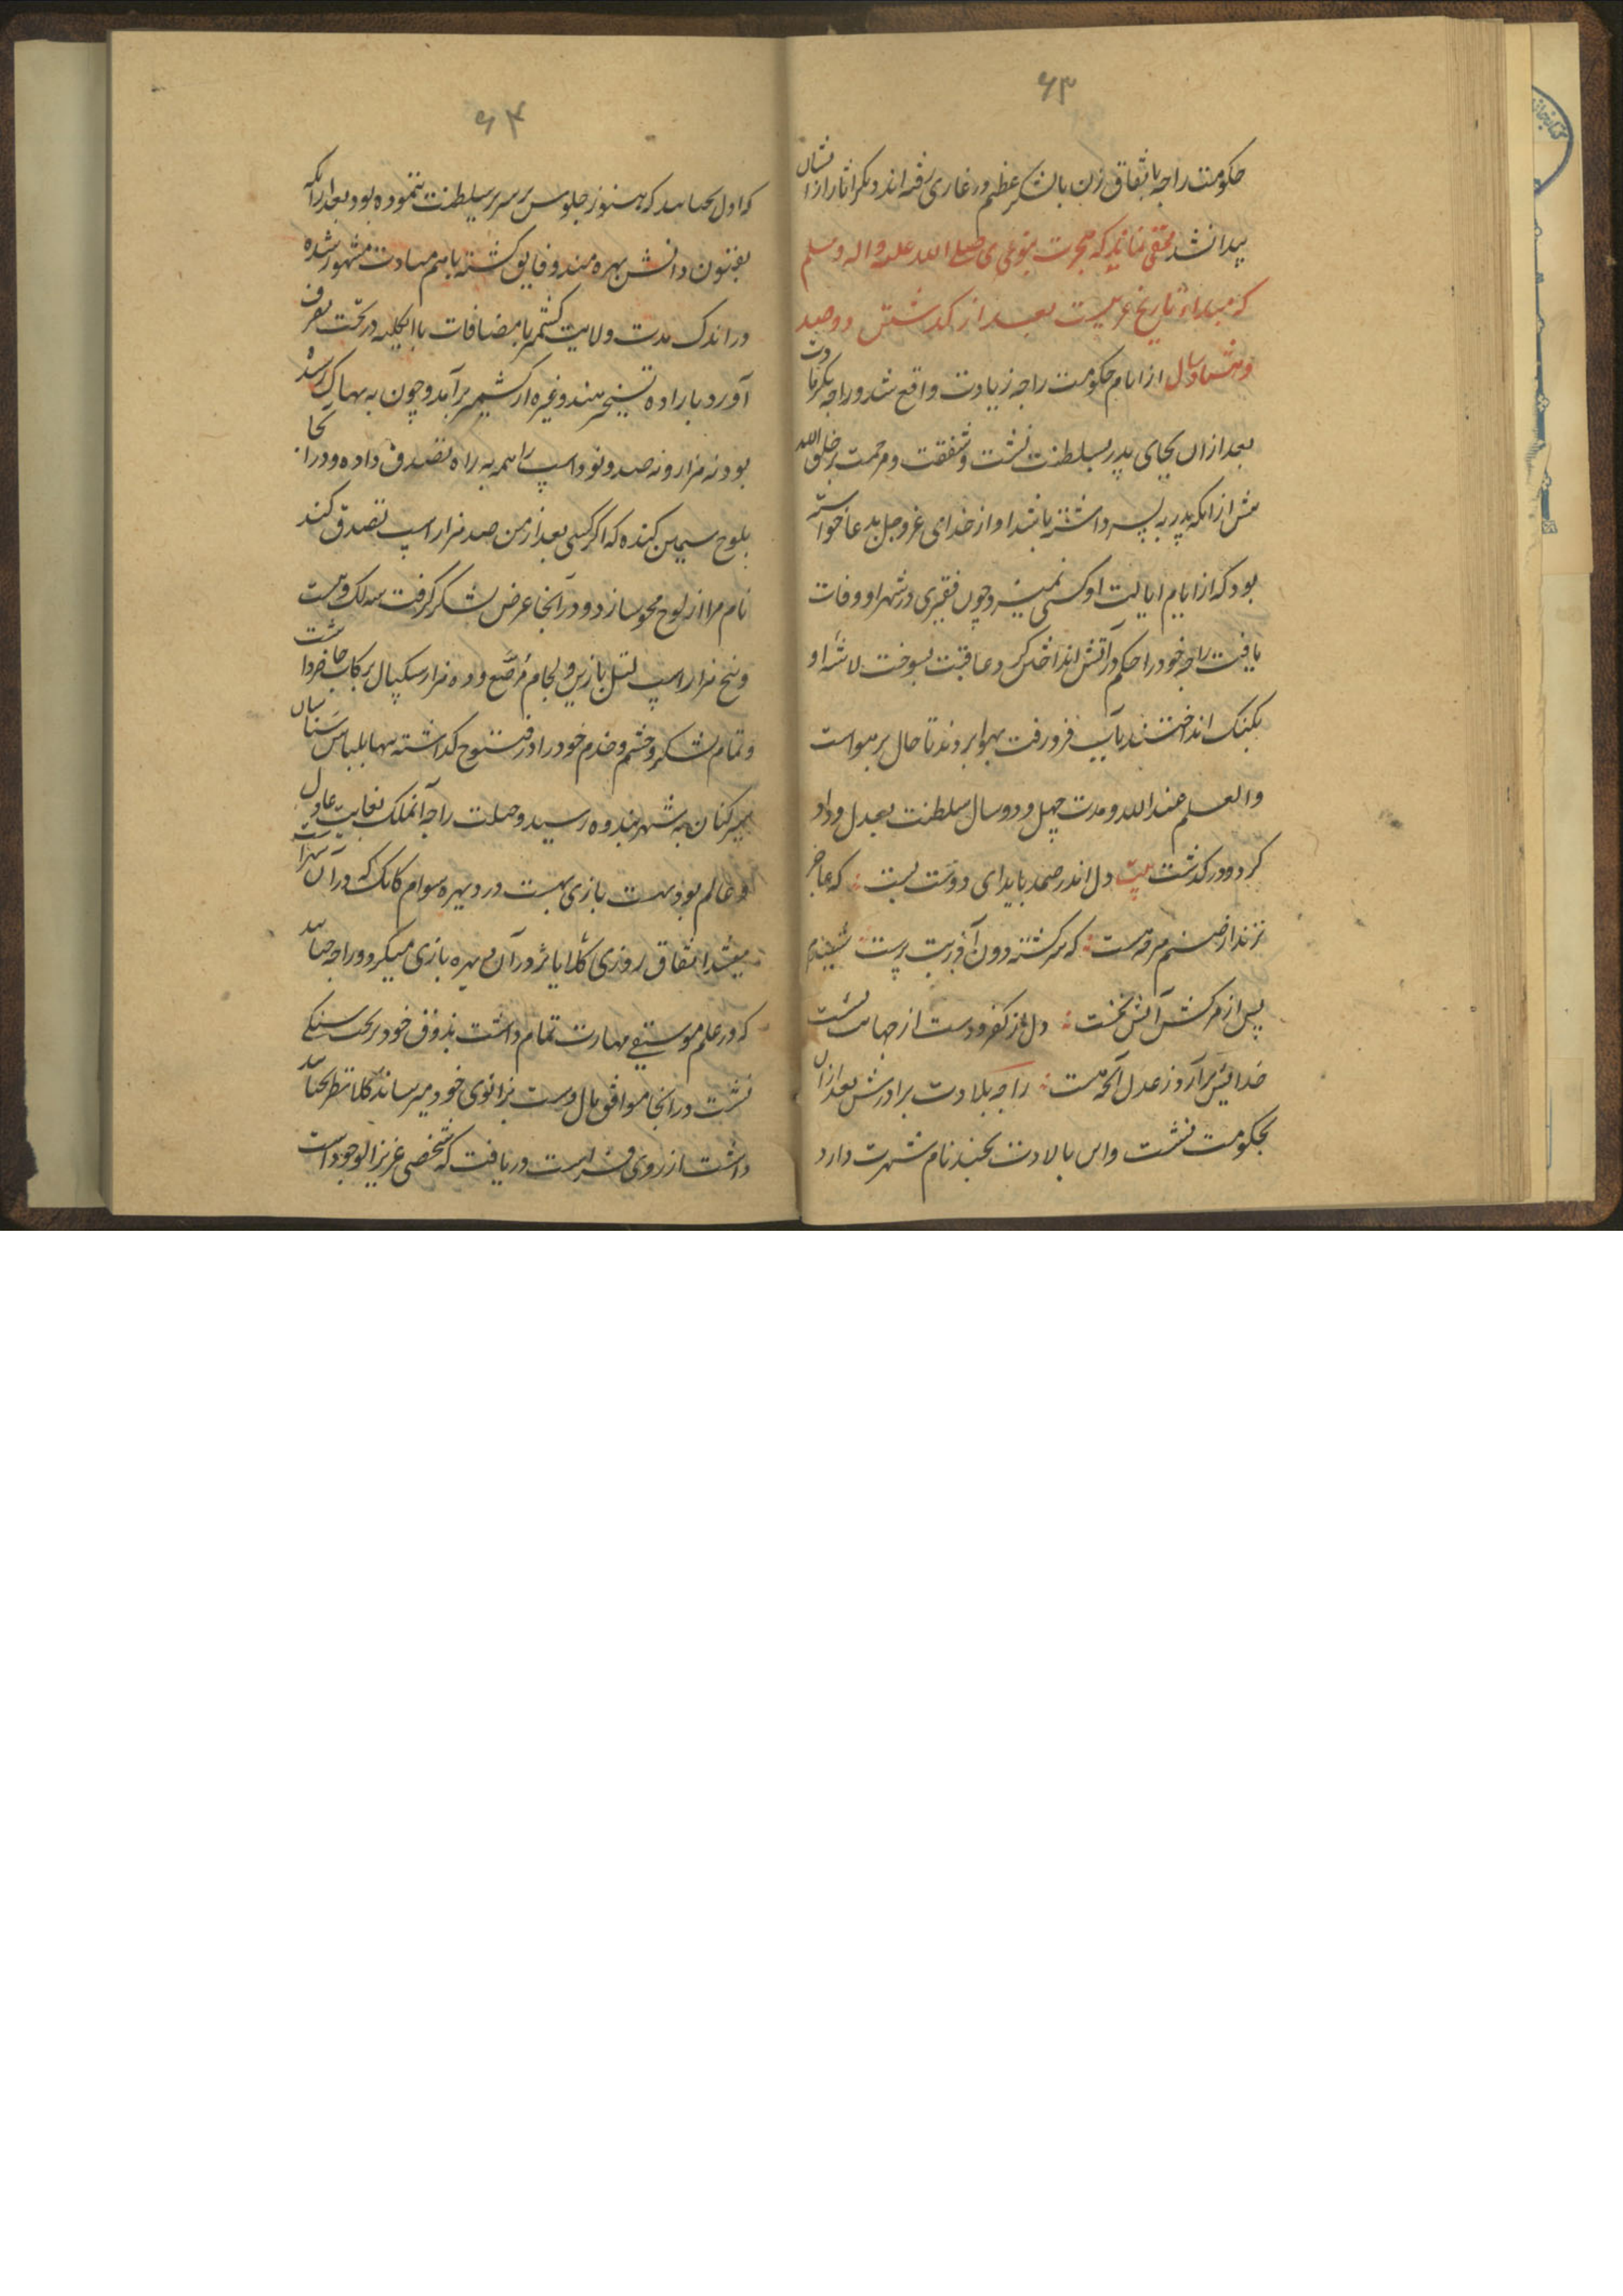 ۶۳
حکومت راجه باتفاق زن بالشکر عظیم در غاری رفته اند و دیگر آثار از ایشان
پیدا نشد مخفی نماند که هجرت نبوی صلی الله علیه واله وسلم
که مبداء تاریخ عربیست بعد از گذشتن دوصد
وهشتاد سال از ایام حکومت راجه زیادت واقع شد و راجه بکرمادت
بعد از ان بجای پدر بسلطنت نشست وشفقت ومرحمت بر خلق الله
بیش از انکه پدر به پسر داشته باشد او از خدای عزوجل بدعا خواسته
بود که از ایام ایالت او کسی نمیرد و چون فقیری در شهر او وفات
یافت راجه خود را حکم در آتش انداختن کرد عاقبت بسوخت لاشه او
بکنک انداختند بآب فرو رفت بهوا بردند تا حال بر هواست
والعلم عند الله ومدت چهل و دو سال سلطنت بعدل وداد
کرد ودر گذشت بیت دل اندر صمد باید ای دوست بست که عاجز
ترند از صنم هر که هست که سرگشته دون آذر بت پرست شنیدم
پس از مرگش آتش نخست دل از کفر ودست از جهان بشست
خدایش برآرد ز عدل آنچه هست راجه بلادت برادرش بعد از ان
بحکومت نشست واین بالادت بچند نام شهرت دارد
۶۴
که اول بجیاسد که هنوز جلوس بر سریر سلطنت ننموده بود بعد از انکه
بفنون دانش بهره مند وفایق گشته باهم مهادت مشهور شده
در اندک مدت ولایت کشمیر با مضافات باالکلیه در تحت تصرف
آورد باراده تسخیر هند وغیره از کشمیر برآمد وچون به بهاک رسیده
بود نه هزار ونه صد و نود اسپ را همه به براه تصدق داده ودر آنجا
بلوح سیمین کنده که اگر کسی بعد از من صد هزار اسپ تصدق کند
نام مرا از لوح محو سازد ودر آنجا عرض لشکر گرفت سه لک وبیست
وپنج هزار اسپ بازین ولجام مرصع وده هزار سکپال برکاب حاضر داشت
وتمام لشکر وخشم وخدم خود را در قنوج گذاشته تنها بلباس سناسیان
سیر کنان به شهر بندوه رسید وصلت راجه آنملک بغایت عادل
وعالم بود بازی هست در دیهره سوام کانک که در آن
میشد اتفاق روزی کلایا نر در آن دیهره بازی میکرد و راجه جیاسد
که در علم موسیقی مهارت تمام داشت بذوق خود بر تخت سنگی
نشست در انجا موافق بال دست بزانوی خود میرساند کلا نظر بجیاسد
داشت از روی فراست دریافت که شخصی عزیز الوجود است